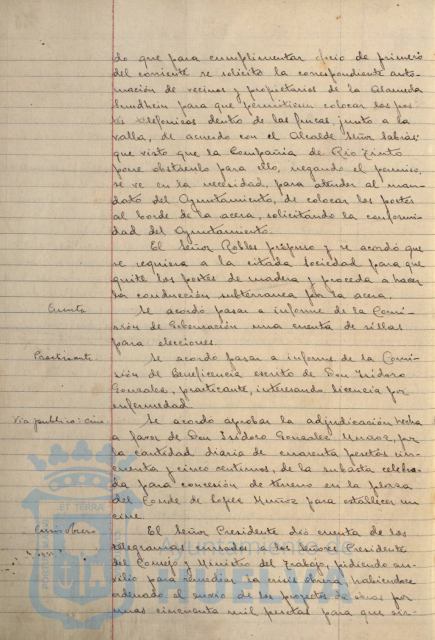 do que para cumplimentar oficio de primero
del corriente se solicitó la correspondiente auto-
rización de vecinos y propietarios de la Alameda
Sundheim para que permitiesen colocar los pos-
tes telefónicos dentro de las fincas, junto a la
valla, de acuerdo con el Alcalde Señor
que visto que la Compañía de Rio Tinto
pone obstáculo para ello, negando el permiso,
se ve en la necesidad, para atender al man-
dato del Ayuntamiento, de colocar los postes
al borde de la acera, solicitando la conformi-
dad del Ayuntamiento.
El Señor Robles propuso y se acordó que
se requiera a la citada sociedad para que
quite los postes de madera y proceda a hacer
la conducción subterránea por la acera.
Cuenta
Se acordó pasar a informe de la Comi-
sión de Gobernación una cuenta de sillas
para elecciones
Practicante
Se acordó pasar a informe de la Comi-
sión de Beneficencia escrito de Don Isidoro
Gonzalez, practicante, interesando licencia por
enfermedad
Via publica: cine
Se acordó aprobar la adjudicación hecha
a favor de Don Isidoro Gonzalez por
la cantidad diaria de cuarenta pesetas cin-
cuenta y cinco centimos, de la subasta celebra-
da para concesión de terreno en la plaza
del Conde de Lopez Muñoz para establecer un
cine.
Crisis Obrera
El Señor Presidente dió cuenta de los
telegramas cursados a los Señores Presidente
del Consejo y Ministro del Trabajo, pidiendo au-
xilio para remediar la crisis obrera, habiéndose
ordenado el envio de los proyectos de obras por
unas cincuenta mil pesetas para que sir-
ET TERRA